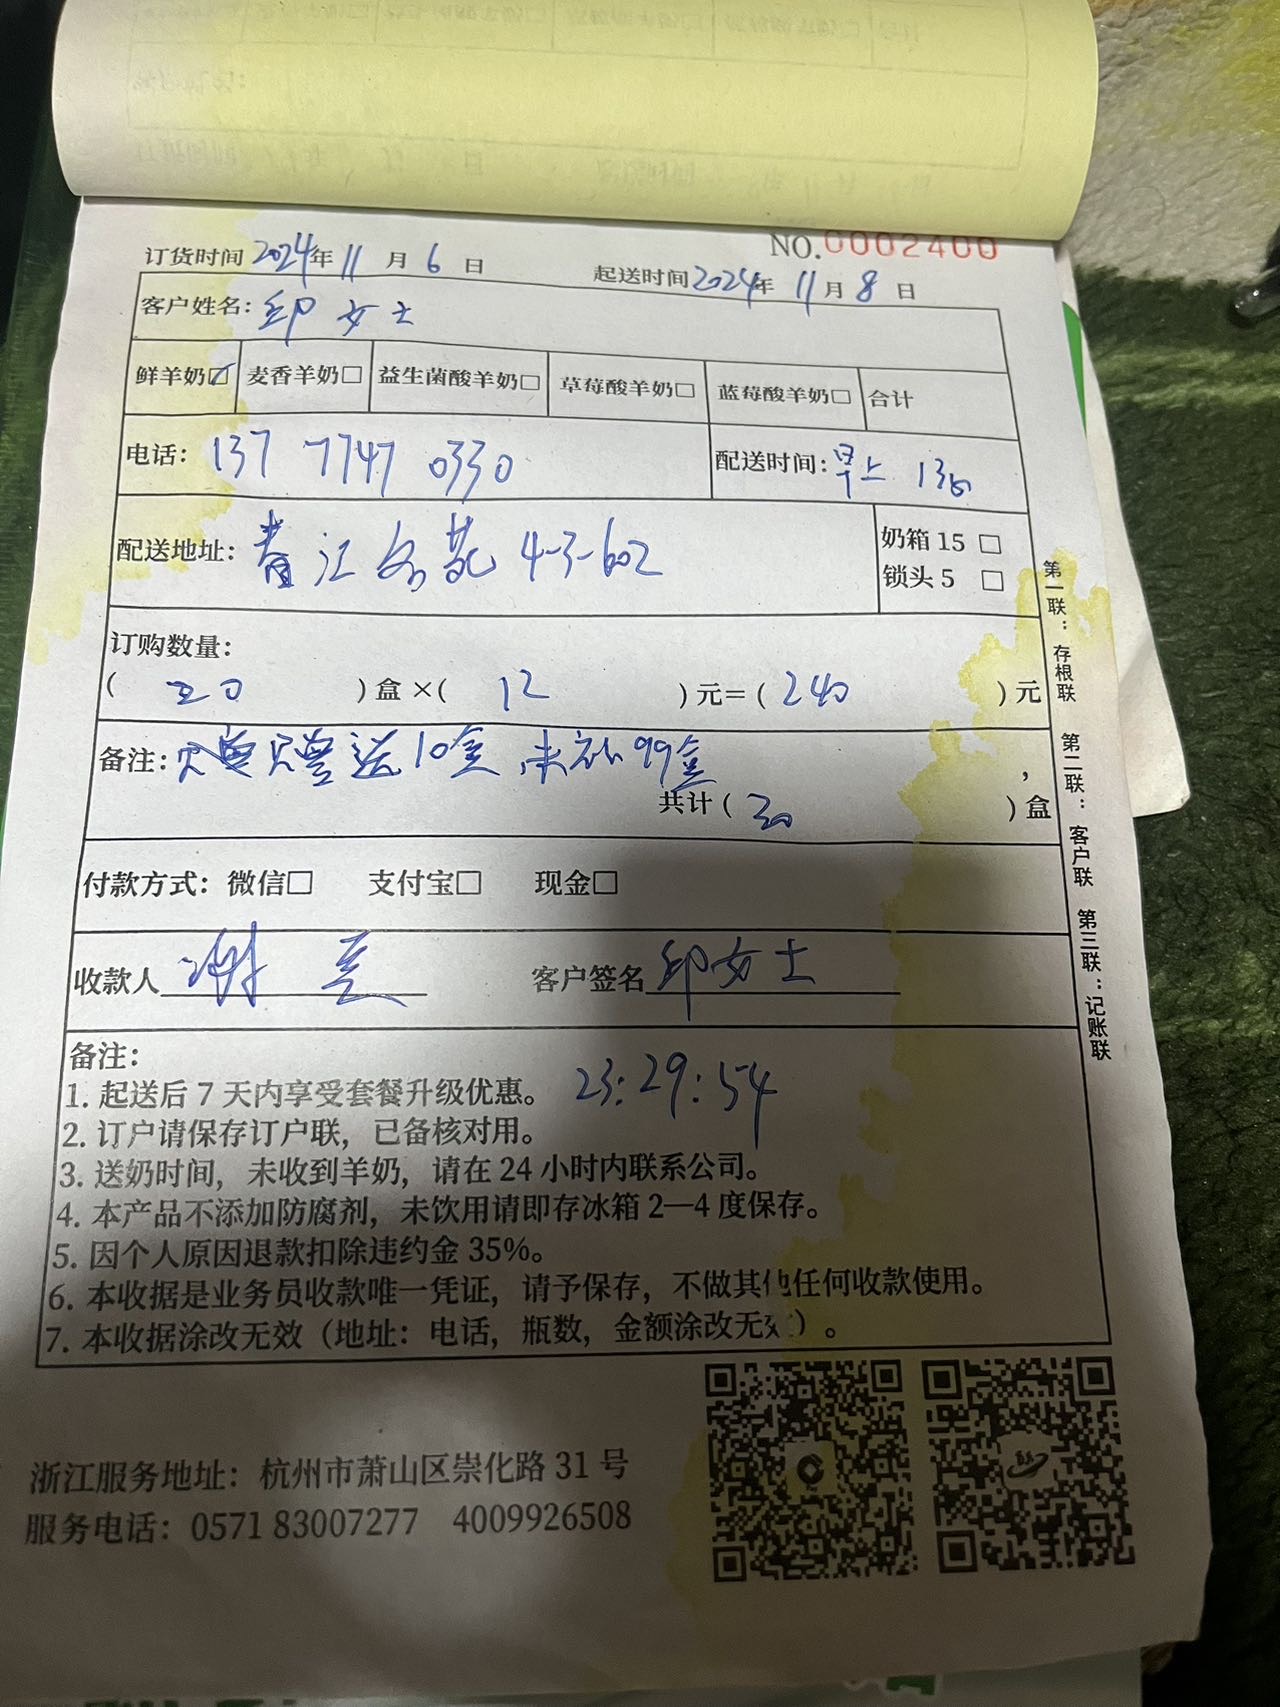 NO.0002400
订货时间 2024年 11 月 6 日 起送时间 2024年 11 月 8 日
客户姓名: 邱女士
鲜羊奶☑ 麦香羊奶□ 益生菌酸羊奶□ 草莓酸羊奶□ 蓝莓酸羊奶□ 合计
电话: 137 7747 0330 配送时间: 早上
配送地址: 春江名苑 4-3-602 奶箱 15 □
锁头 5 □
订购数量:
( 20 ) 盒 ×( 12 ) 元＝( 240 ) 元
备注: 送10盒 99盒 ，
共计 ( 30 ) 盒
付款方式: 微信□ 支付宝□ 现金□
收款人 谢 客户签名 邱女士
备注:
1. 起送后 7 天内享受套餐升级优惠。 23:29:54
2. 订户请保存订户联，已备核对用。
3. 送奶时间，未收到羊奶，请在 24 小时内联系公司。
4. 本产品不添加防腐剂，未饮用请即存冰箱 2—4 度保存。
5. 因个人原因退款扣除违约金 35%。
6. 本收据是业务员收款唯一凭证，请予保存，不做其他任何收款使用。
7. 本收据涂改无效（地址：电话，瓶数，金额涂改无效）。
第一联：存根联 第二联：客户联 第三联：记账联
浙江服务地址：杭州市萧山区崇化路 31 号
服务电话：0571 83007277 4009926508